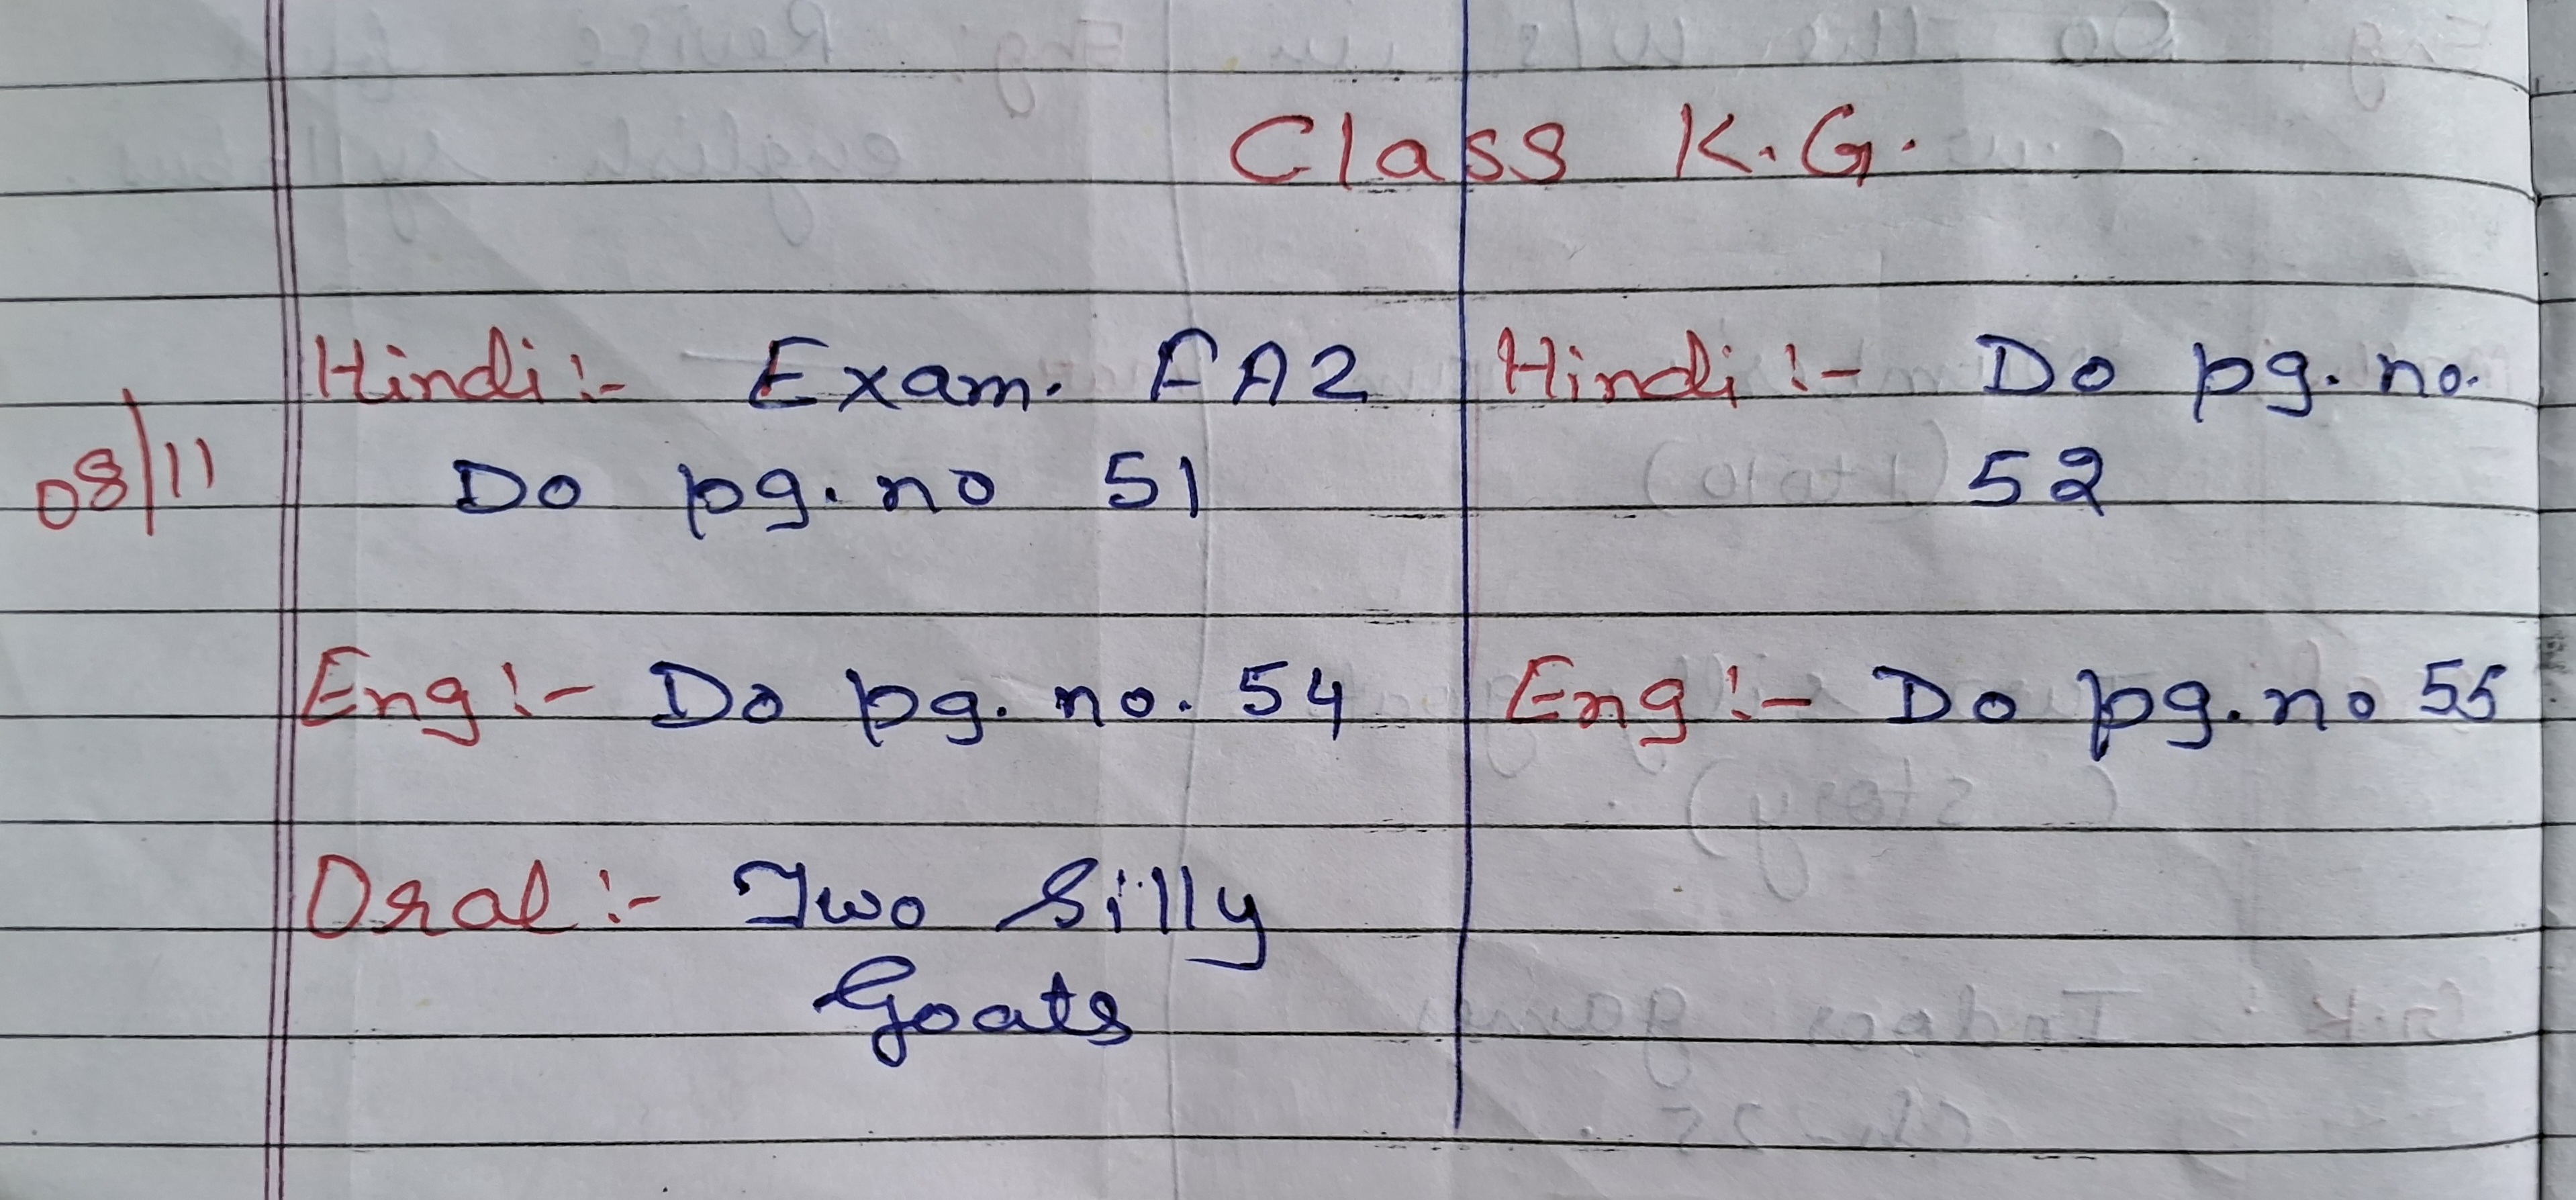 Class K.G.
08/11
Hindi:- Exam. FA2
Do pg. no 51
Eng:- Do pg. no. 54
Oral:- Two Silly
Goats
Hindi:- Do pg. no.
52
Eng:- Do pg. no 55